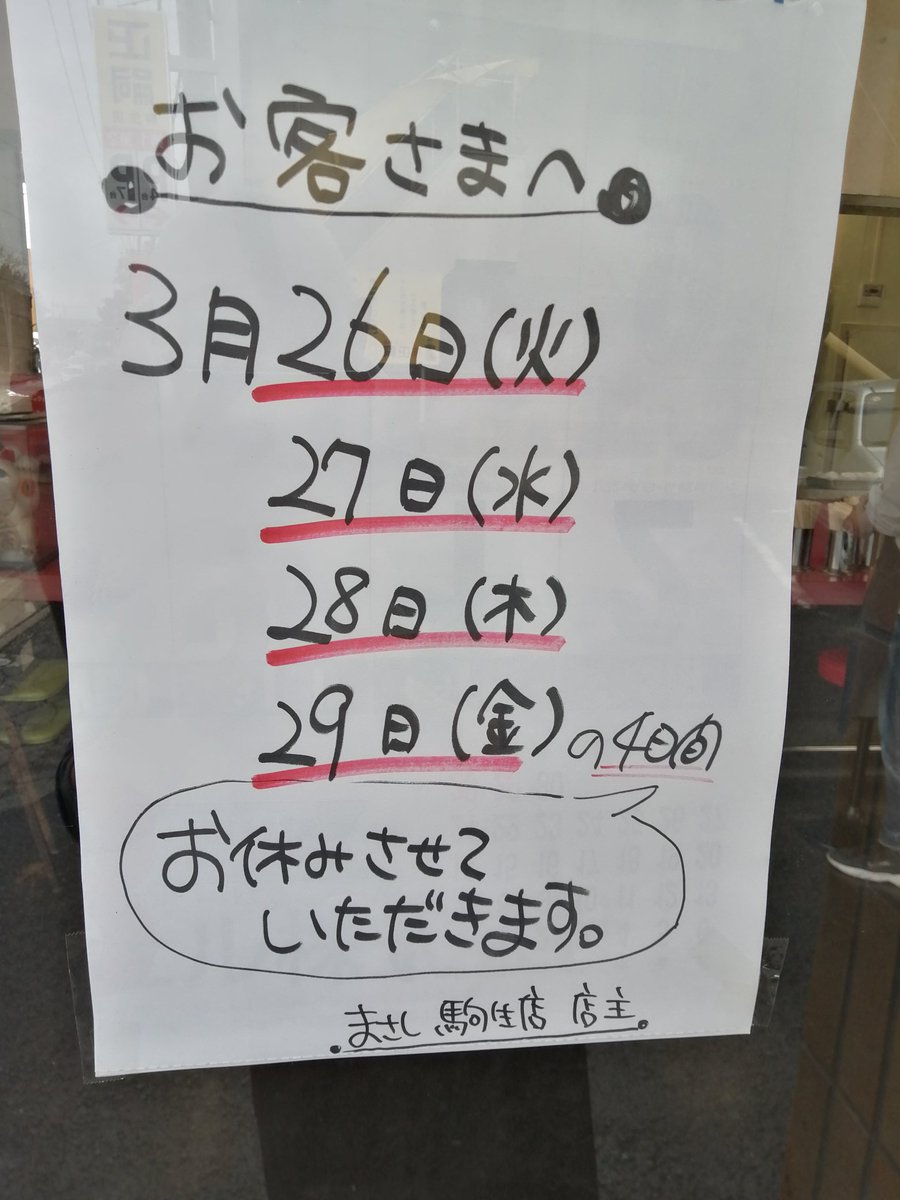 お客さまへ
3月26日(火)
27日(水)
28日(木)
29日(金)の4日間
お休みさせて
いただきます。
まさし 駒生店 店主